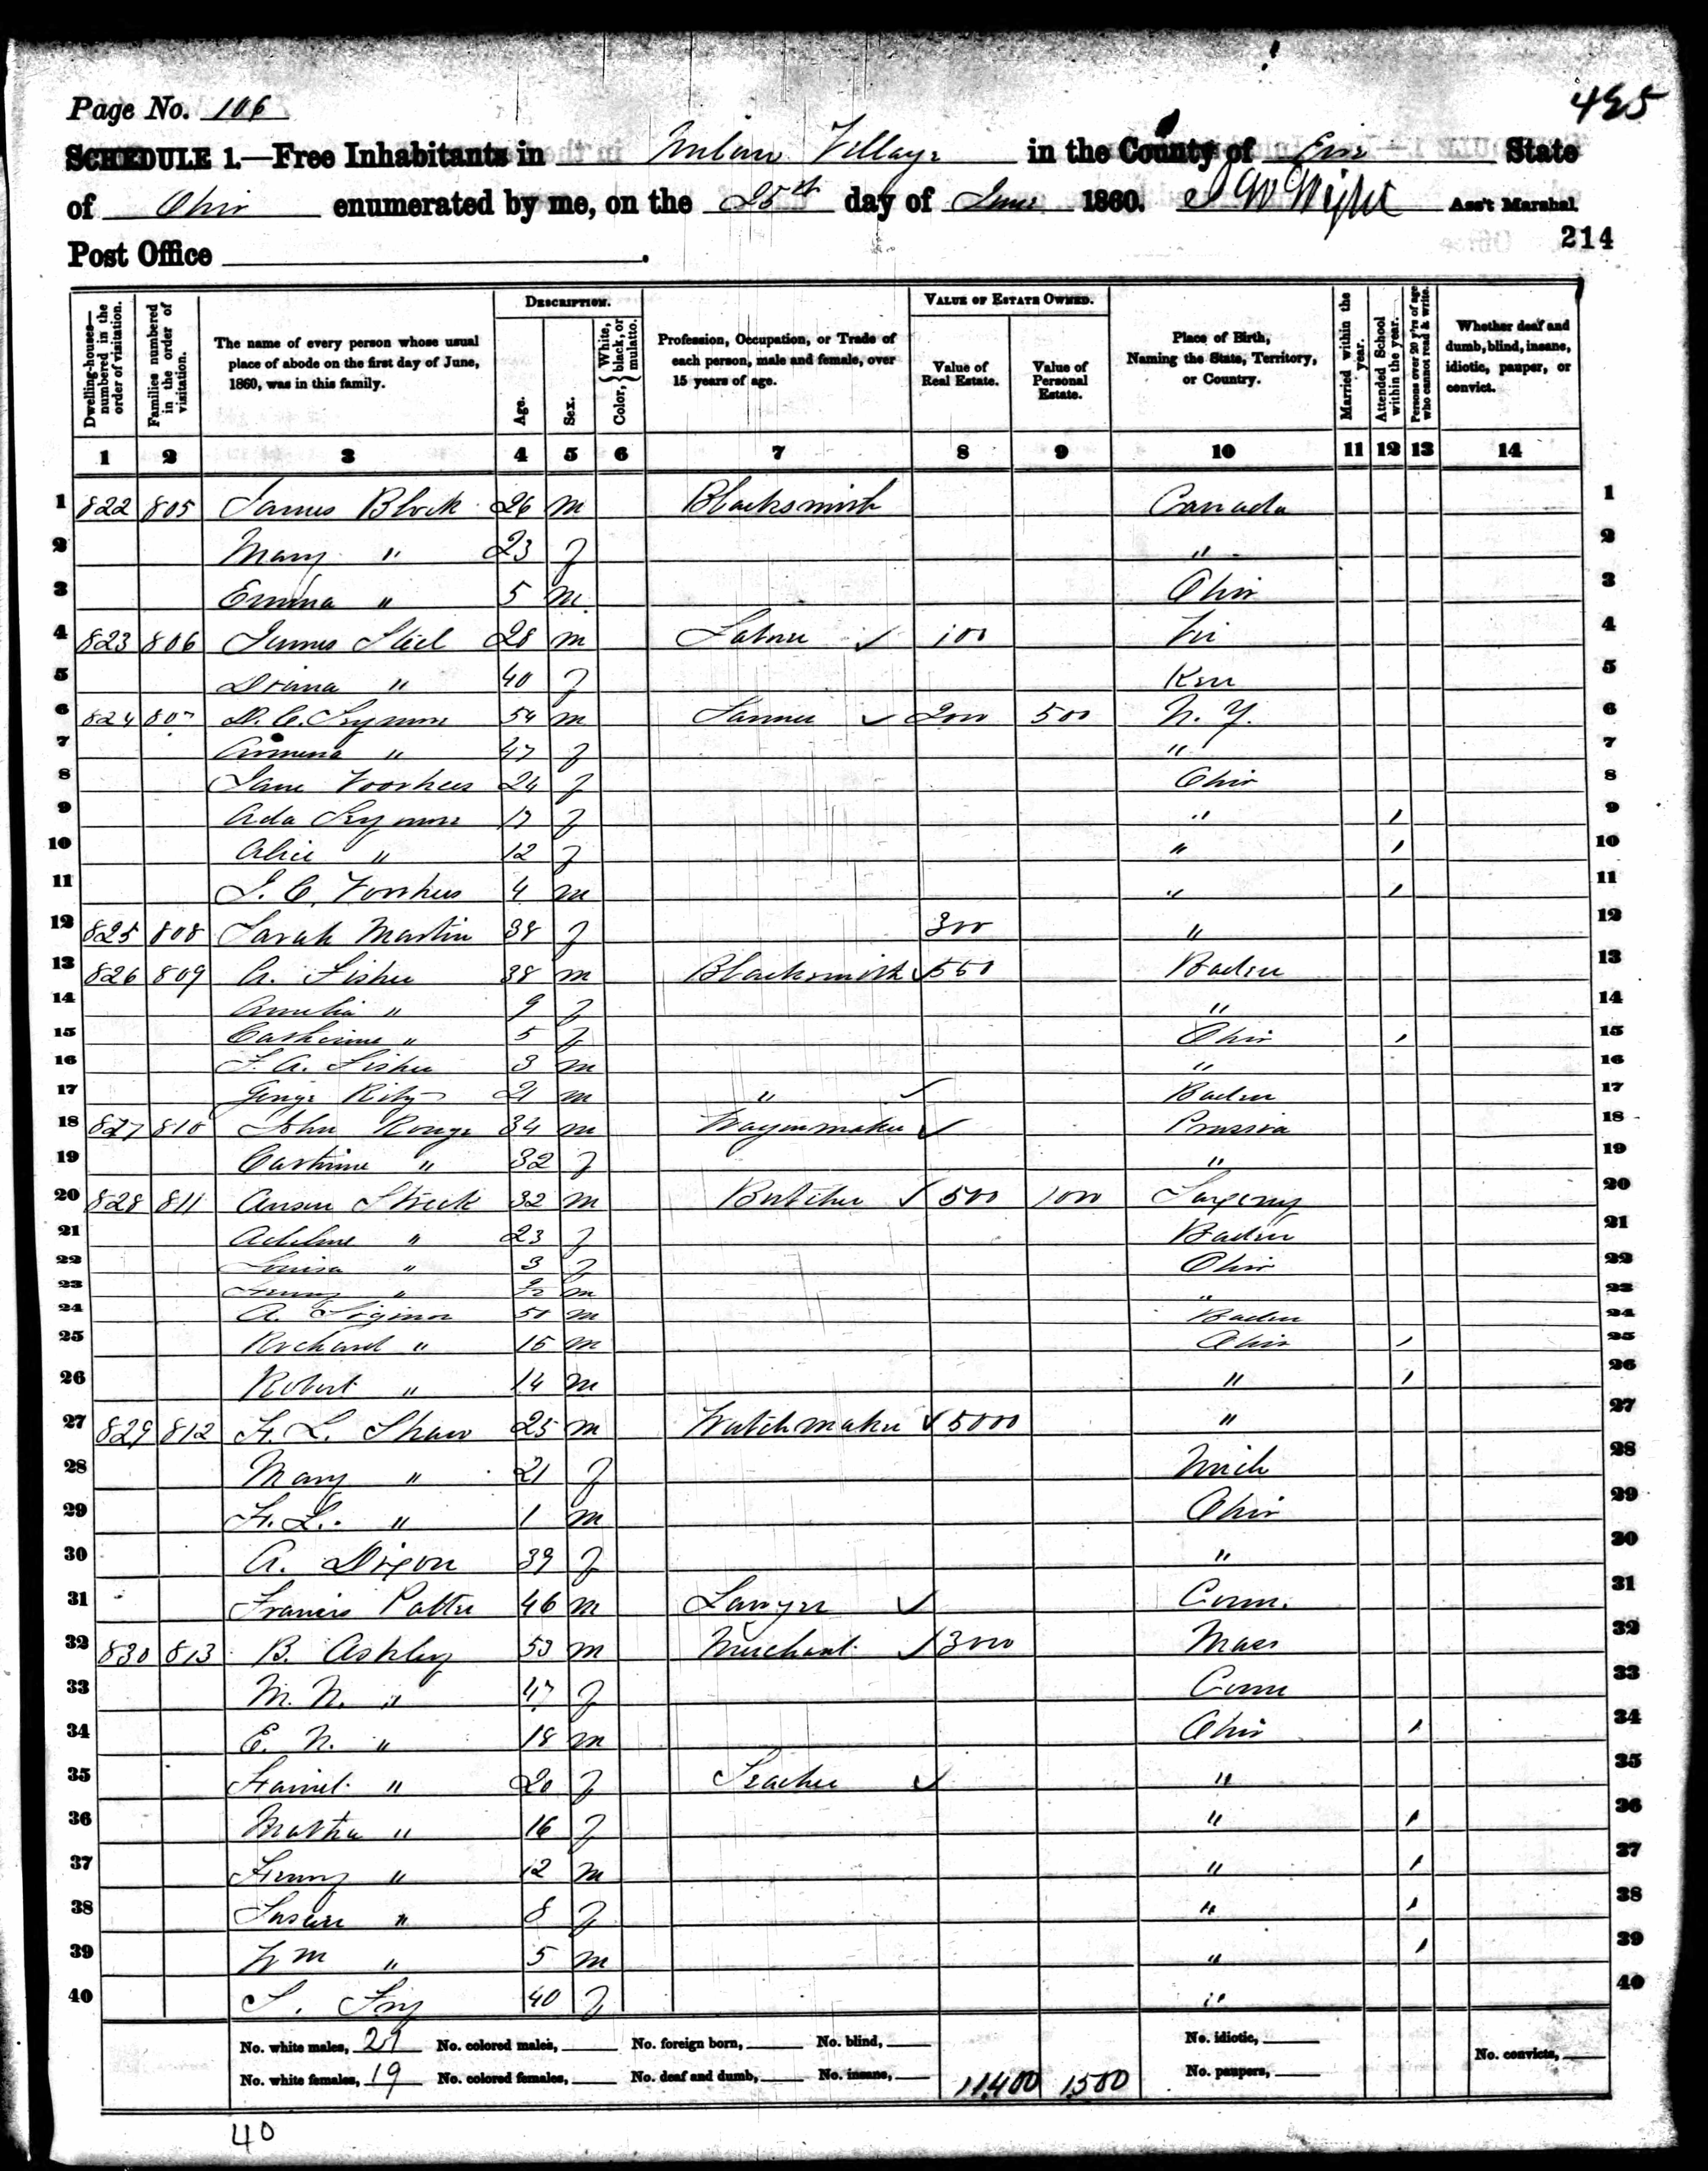 Page No. 106
485
SCHEDULE 1.—Free Inhabitants in Milan Village in the County of Erie State
of Ohio enumerated by me, on the 25th day of June 1860. Ass't Marshal.
Post Office
214
Dwelling-houses—numbered in the order of visitation.
Families numbered in the order of visitation.
The name of every person whose usual place of abode on the first day of June, 1860, was in this family.
DESCRIPTION.
Age.
Sex.
Color, { White, black, or mulatto.
Profession, Occupation, or Trade of each person, male and female, over 15 years of age.
VALUE OF ESTATE OWNED.
Value of Real Estate.
Value of Personal Estate.
Place of Birth, Naming the State, Territory, or Country.
Married within the year.
Attended School within the year.
Persons over 20 y'rs of age who cannot read & write.
Whether deaf and dumb, blind, insane, idiotic, pauper, or convict.
1 2 3 4 5 6 7 8 9 10 11 12 13 14
1 822 805 James Block 26 m Blacksmith Canada 1
2 Mary " 23 f " 2
3 Emma " 5 m Ohio 3
4 823 806 James 28 m Labore ✓ 100 Vir 4
5 " 40 f Ken 5
6 824 807 D. C. Seymore 54 m Tanner ✓ 2000 500 N. Y. 6
7 " 47 f " 7
8 Jane Voorhees 24 f Ohio 8
9 Ada Seymore 17 f " / 9
10 Alice " 12 f " / 10
11 J. C. Voorhees 4 m " / 11
12 825 808 Sarah Martin 38 f 300 " 12
13 826 809 A. Fisher 38 m Blacksmith ✓ 550 Baden 13
14 Amelia " 9 f " 14
15 Catherine " 5 f Ohio / 15
16 F. A. Fisher 3 m " 16
17 George 21 m " ✓ Baden 17
18 827 810 John 34 m Wagonmaker ✓ Prussia 18
19 " 32 f " 19
20 828 811 32 m Butcher ✓ 500 1000 20
21 Adeline " 23 f Baden 21
22 Louisa " 3 f Ohio 22
23 Henry " m " 23
24 A. 50 m Baden 24
25 Richard " 15 m Ohio / 25
26 Robert " 14 m " / 26
27 829 812 H. L. Shaw 25 m Watchmaker ✓ 5000 " 27
28 Mary " 21 f Mich 28
29 H. L. " 1 m Ohio 29
30 A. Dixon 39 f " 30
31 Francis 46 m Lawyer ✓ Conn. 31
32 830 813 B. Ashley 53 m Merchant ✓ 3000 Mass 32
33 M. N. " 47 f Conn 33
34 E. N. " 18 m Ohio / 34
35 Harriet " 20 f Teacher ✓ " 35
36 Martha " 16 f " / 36
37 Henry " 12 m " / 37
38 Susan " 8 f " / 38
39 Wm " 5 m " / 39
40 S. Fry 40 f " 40
No. white males, 21 No. colored males, No. foreign born, No. blind, No. idiotic,
No. white females, 19 No. colored females, No. deaf and dumb, No. insane, 11,400 1500 No. paupers, No. convicts,
40